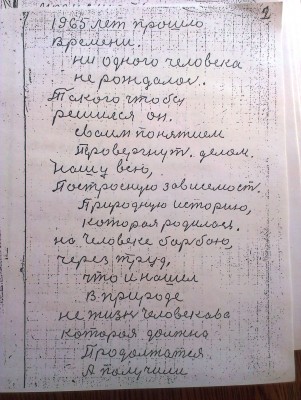 2
1965 лет прошло
Времени.
ни одного человека
не рождалос.
Такого чтобы
решился он.
своим понятием
Провергнут. делом.
Нашу всю,
Построеную зависемост.
Природную историю,
которая родилас.
на человеке барбою,
через труд,
что и нашел
в природе
не жизн человекава
которая должна
Продолжатся
А палучили